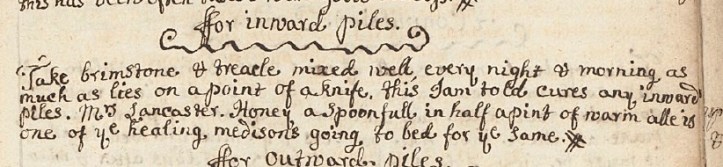 ffor inward piles.
Take brimstone & treacle mixed well, every night & morning, as
much as lies on a point of a knife, this I am told cures any inward
piles. Mrs Lancaster. Honey a spoonfull in half a pint of warm alle is
one of ye healing, medisons going to bed for ye same.
ffor outward piles.